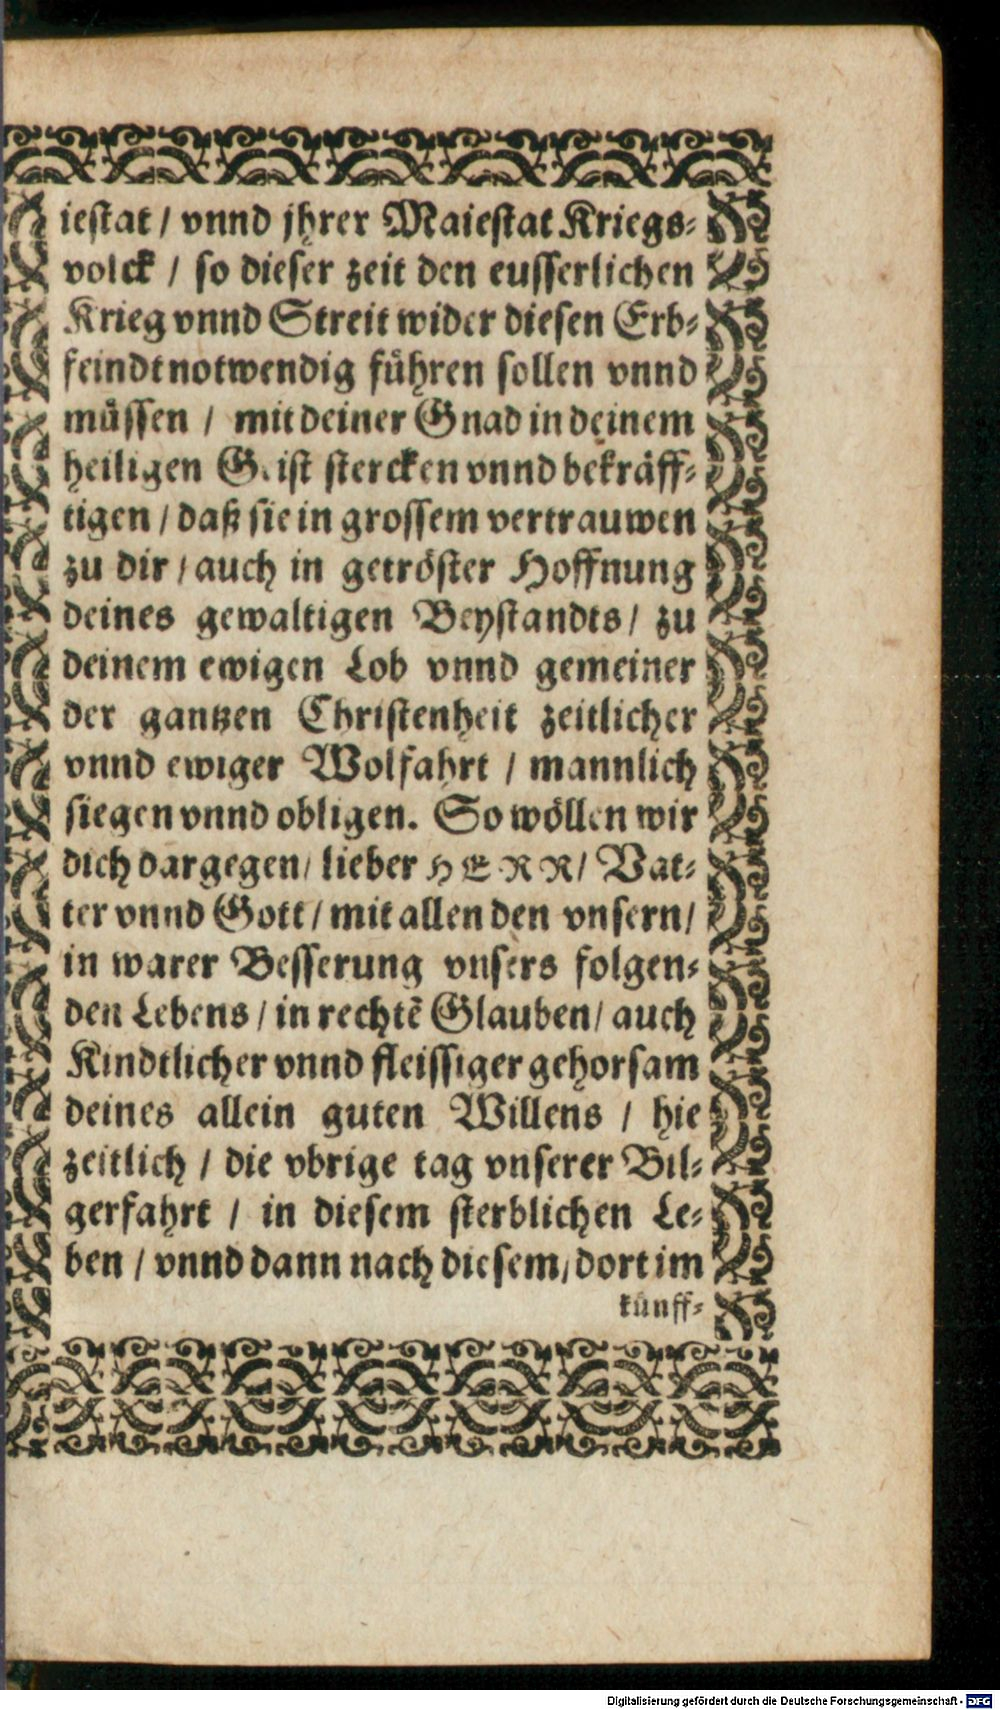 iestat / vnnd jhrer Maiestat Kriegs-
volck / so dieser zeit den eusserlichen
Krieg vnnd Streit wider diesen Erb-
feindt notwendig führen sollen vnnd
müssen / mit deiner Gnad in deinem
heiligen Geist stercken vnnd bekräff-
tigen / daß sie in grossem vertrauwen
zu dir / auch in getröster Hoffnung
deines gewaltigen Beystandts / zu
deinem ewigen Lob vnnd gemeiner
der gantzen Christenheit zeitlicher
vnnd ewiger Wolfahrt / mannlich
siegen vnnd obligen. So wöllen wir
dich dargegen / lieber HERR / Vat-
ter vnnd Gott / mit allen den vnsern /
in warer Besserung vnsers folgen-
den Lebens / in rechtẽ Glauben / auch
Kindtlicher vnnd fleissiger gehorsam
deines allein guten Willens / hie
zeitlich / die vbrige tag vnserer Bil-
gerfahrt / in diesem sterblichen Le-
ben / vnnd dann nach diesem / dort im
künff-
Digitalisierung gefördert durch die Deutsche Forschungsgemeinschaft - DFG